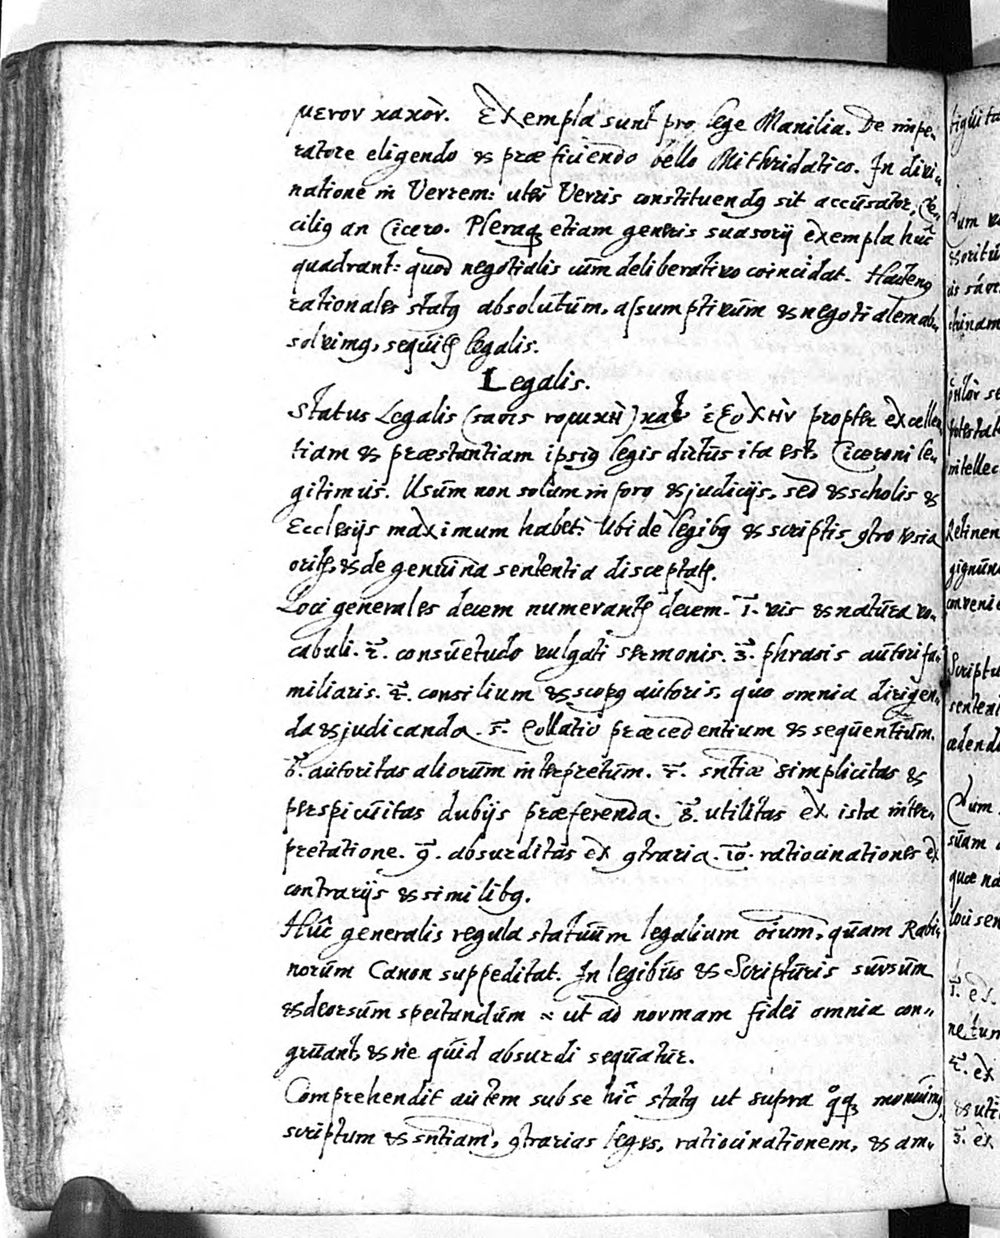 μενον κακὸν. Exempla sunt pro lege Manilia. De impe-
ratore eligendo & præficiendo bello Mithridatico. In divi-
natione in Verrem: utrū Verris constituendꝰ sit accusator, Ce-
ciliꝰ an Cicero. Pleraq; etiam generis suasorij exempla huc
quadrant: quod negotialis cum deliberativo coincidat. Hactenꝰ
rationales statꝰ absolutum, assumptivum & negotialem ab-
solvimꝰ, sequitꝛ legalis.
Legalis.
Status Legalis (στάσις νομικὴ) κατ' ἐξοχὴν propter excellen-
tiam & præstantiam ipsiꝰ legis dictus ita est, Ciceroni le-
gitimus. Usum non solum in foro & judicijs, sed & scholis &
Ecclesijs maximum habet: Ubi de legibꝰ & scriptis ꝯtroversia
oritꝛ, & de genuina sententia disceptatꝛ.
Loci generales decem numerantꝛ decem. 1. vis & natura vo-
cabuli. 2. consuetudo vulgati sermonis. 3. phrasis autori fa-
miliaris. 4. consilium & scopꝰ autoris, quo omnia dirigen-
da & judicanda. 5. Collatio præcedentium & sequentium.
6. autoritas aliorum interpretum. 7. sntiæ simplicitas &
perspicuitas dubijs præferenda. 8. utilitas ex ista inter-
pretatione. 9. absurditas ex ꝯtraria. 10. ratiocinationes ex
contrarijs & similibꝰ.
Huc generalis regula statuum legalium oium, quam Rabi-
norum Canon suppeditat. In legibus & Scripturis sursum
& deorsum spectandum ut ad normam fidei omnia con-
gruant, & ne quid absurdi sequatur.
Comprehendit autem sub se hic statꝰ ut supra qꝙ monuimꝰ,
scriptum & sntiam, ꝯtrarias leges, ratiocinationem, & am-